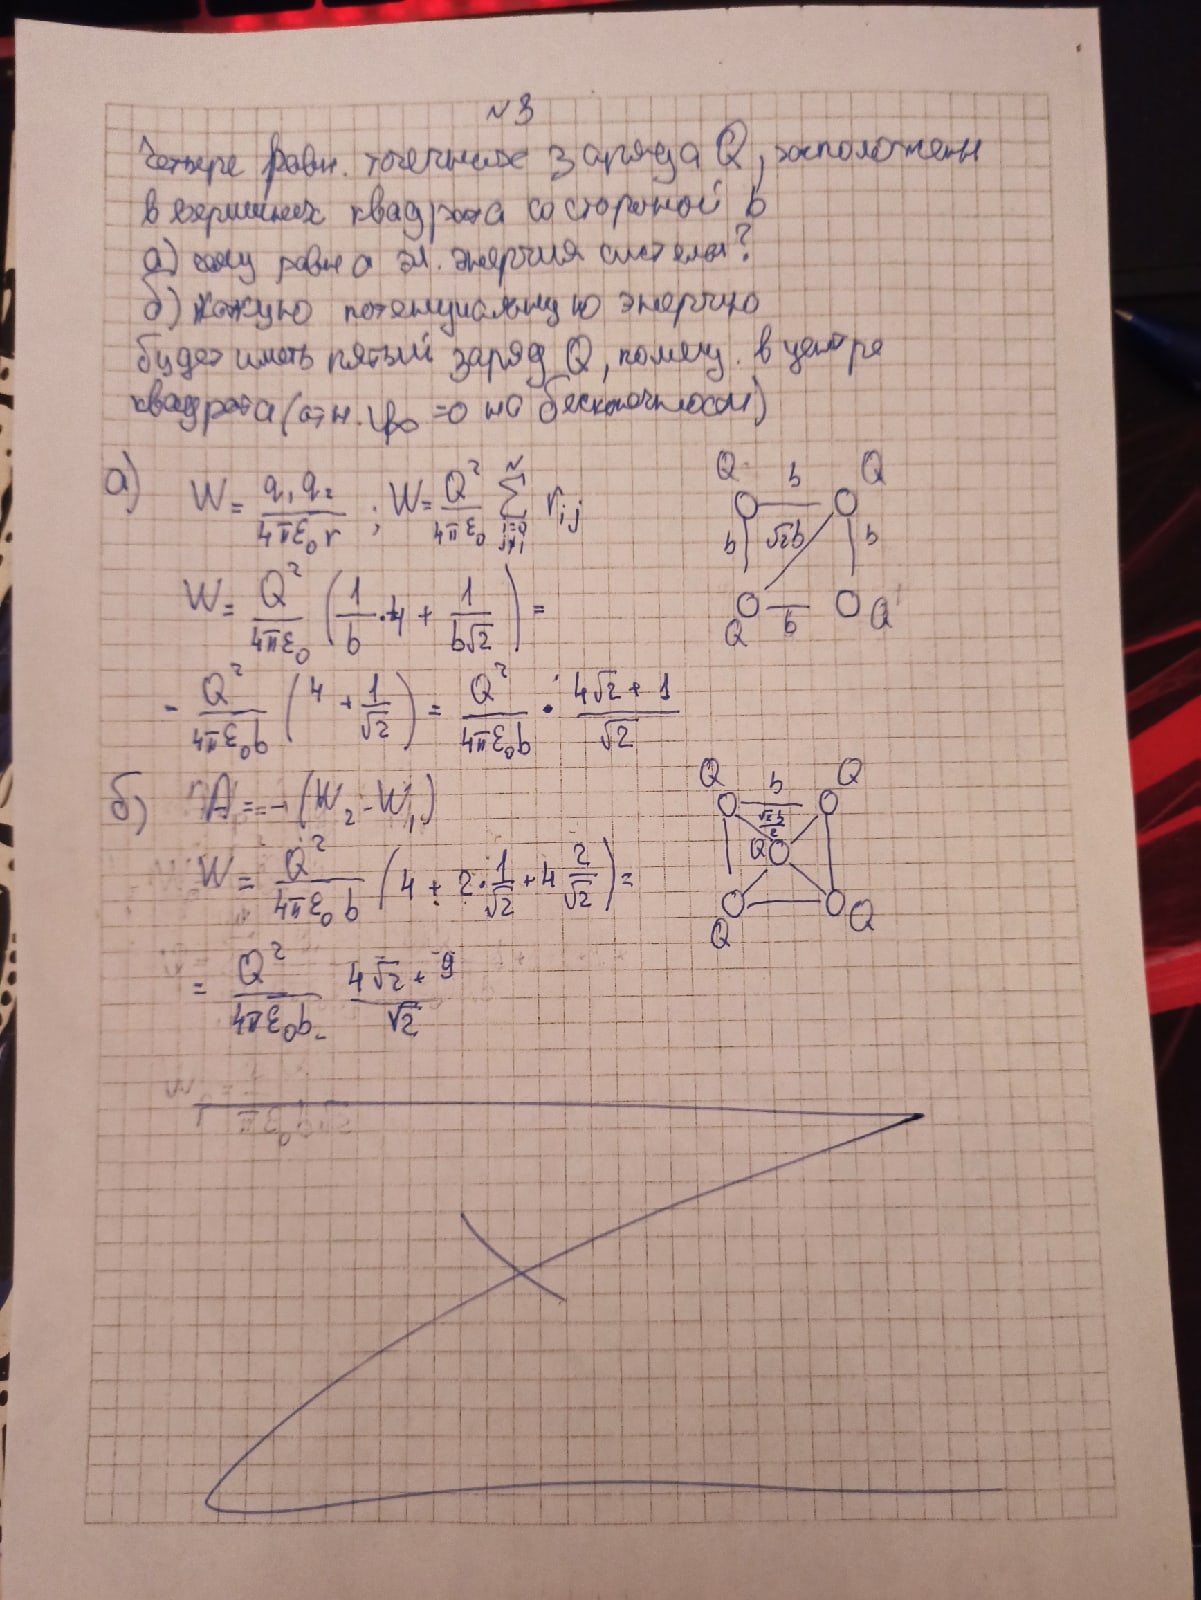 №3
Четыре равн. точечные заряда Q, расположены
в вершинах квадрата со стороной b
а) чему равна эл. энергия системы?
б) какую потенциальную энергию
будет иметь пятый заряд Q, помещ. в центре
квадрата (отн. φ₀ = 0 на бесконечности)
а) W = q₁q₂ / 4πε₀r ; W = Q² / 4πε₀ ∑ r i,j
Q b Q
b √2b b
Q b Q
W = Q² / 4πε₀ (1/b · 4 + 1/b√2) =
= Q² / 4πε₀b (4 + 1/√2) = Q² / 4πε₀b · 4√2 + 1 / √2
б) A = -(W₂ - W₁)
Q b Q
√2 b / 2
Q
Q Q
W = Q² / 4πε₀b (4 + 2 · 1/√2 + 4 2/√2) =
= Q² / 4πε₀b 4√2 + 9 / √2